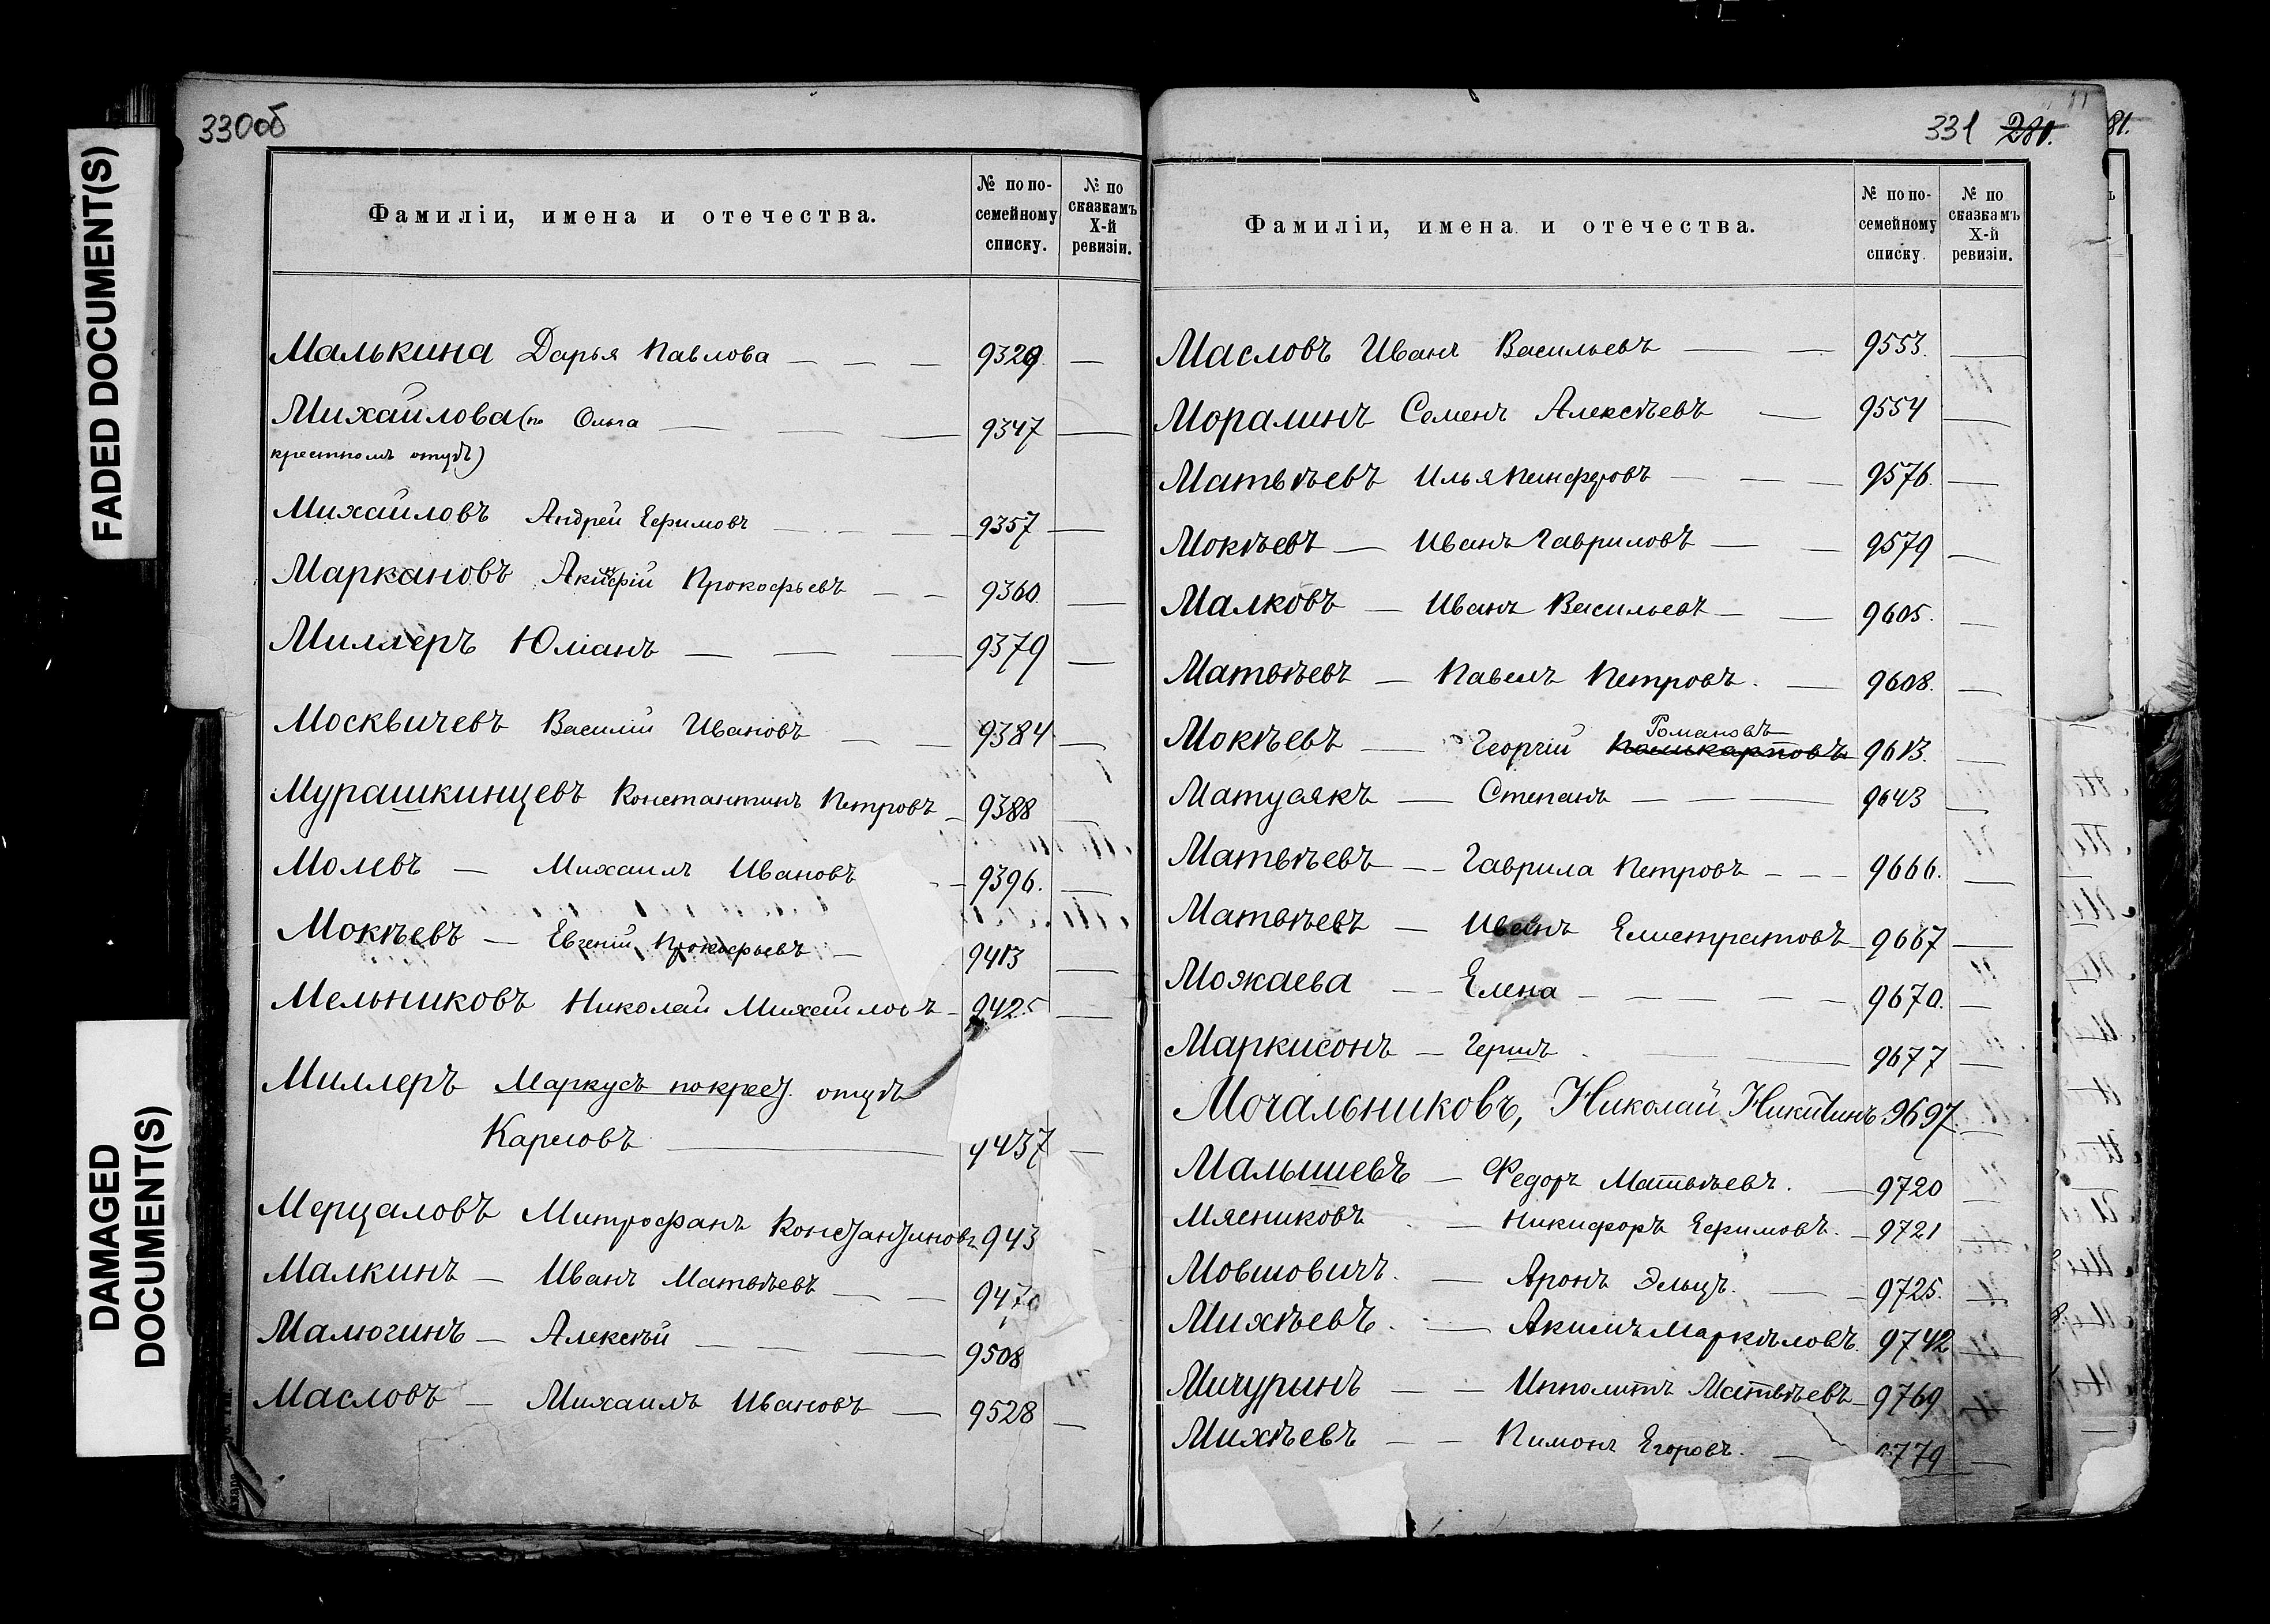 FADED DOCUMENT(S)
DAMAGED
DOCUMENT(S)
330об
Фамиліи, имена и отечества.
№ по по-
семейному
списку.
№ по
сказкамъ
X-й
ревизіи.
Малькина Дарья Павлова — — — 9329. —
Михайлова (по Ольга — — — 9347 —
крестномъ отцѣ)
Михайловъ Андрей Ефимовъ — — — 9357 —
Маркановъ Прокофьевъ — — 9360. —
Миллеръ Юліанъ — — — 9379 —
Москвичевъ Василій Ивановъ — — 9384 —
Мурашкинцевъ Константинъ Петровъ — 9388 —
Молевъ — Михаилъ Ивановъ — 9396. —
Мокѣевъ — Евгеній Прокофьевъ — 9413 —
Мельниковъ Николай Михайловъ — 9425 —
Миллеръ Маркусъ по крест. отцѣ
Карловъ — 9437 —
Мерцаловъ Митрофанъ Константиновъ 943
Малкинъ — Иванъ Матвѣевъ — — 9470
Малюгинъ — Алексѣй — — — 9508
Масловъ — Михаилъ Ивановъ — 9528 —
331 280.
81.
Фамиліи, имена и отечества.
№ по по-
семейному
списку.
№ по
сказкамъ
X-й
ревизіи.
Масловъ Иванъ Васильевъ — — 9553. —
Моралинъ Семенъ Алексѣевъ — 9554 —
Матвѣевъ Илья — — — 9576. —
Мокѣевъ — Иванъ Гавриловъ — — 9579 —
Малковъ — Иванъ Васильевъ — — 9605. —
Матвѣевъ — Павелъ Петровъ. — 9608. —
Романовъ
Мокѣевъ — Георгій Поликарповъ 9613. —
Матусякъ — Степанъ — — — 9643 —
Матвѣевъ — Гаврила Петровъ — — — 9666. —
Матвѣевъ — Иванъ Елистратовъ — 9667 —
Можаева — Елена — — — — — 9670. —
Маркисонъ — Гершъ — — 9677 —
Мочальниковъ, Николай Никитинъ 9697. —
Малышевъ — Федоръ Матвѣевъ. — 9720 —
Мясниковъ — Никифоръ Ефимовъ. — 9721 —
Мовшовичъ. — Аронъ — — 9725. —
Михѣевъ. — Акимъ Маркѣловъ. 9742 —
Мичуринъ — — Ипполитъ Матвѣевъ — 9769 —
Михѣевъ — — Пимонъ Егоровъ. — 9779 —